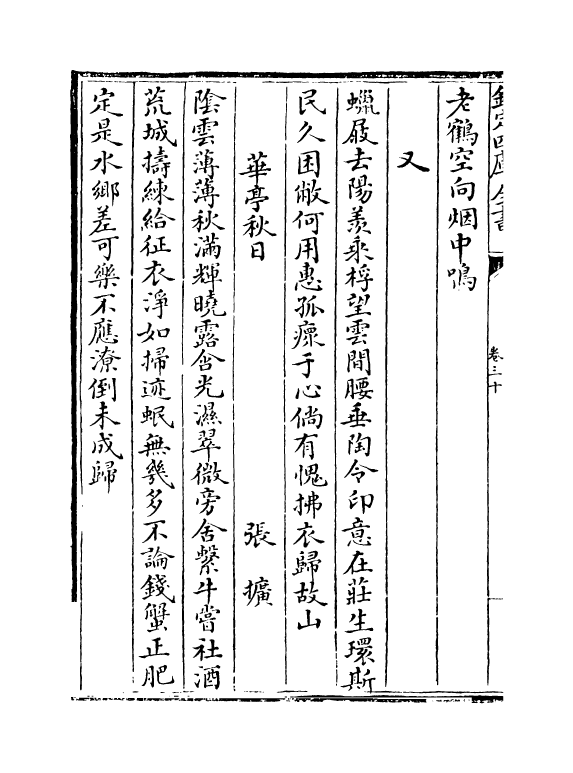 欽定四庫全書
卷三十
老鶴空向烟中鳴
又
蠟屐去陽羨乘桴望雲間腰垂陶令印意在莊生環斯
民久困敝何用惠孤瘝于心倘有愧拂衣歸故山
華亭秋日　張擴
陰雲薄薄秋滿輝曉露含光濕翠微旁舍繫牛嘗社酒
荒城擣練給征衣淨如掃迹無幾多不論錢蟹正肥
定是水鄉差可樂不應潦倒未成歸